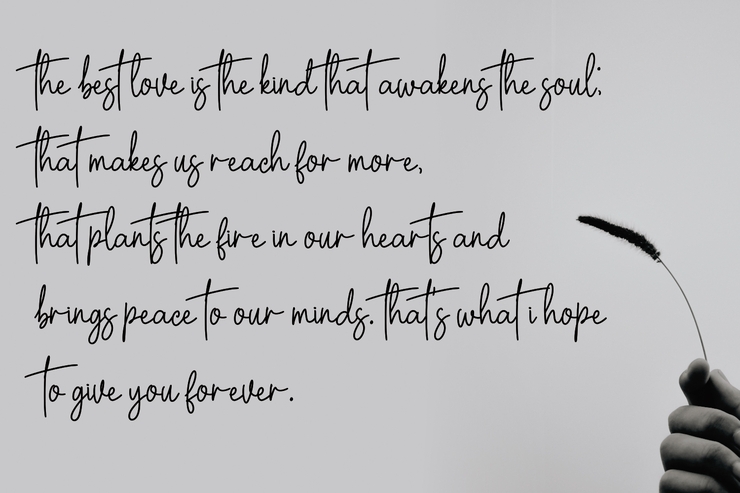 the best love is the kind that awakens the soul;
that makes us reach for more,
that plants the fire in our hearts and
brings peace to our minds. that's what i hope
to give you forever.